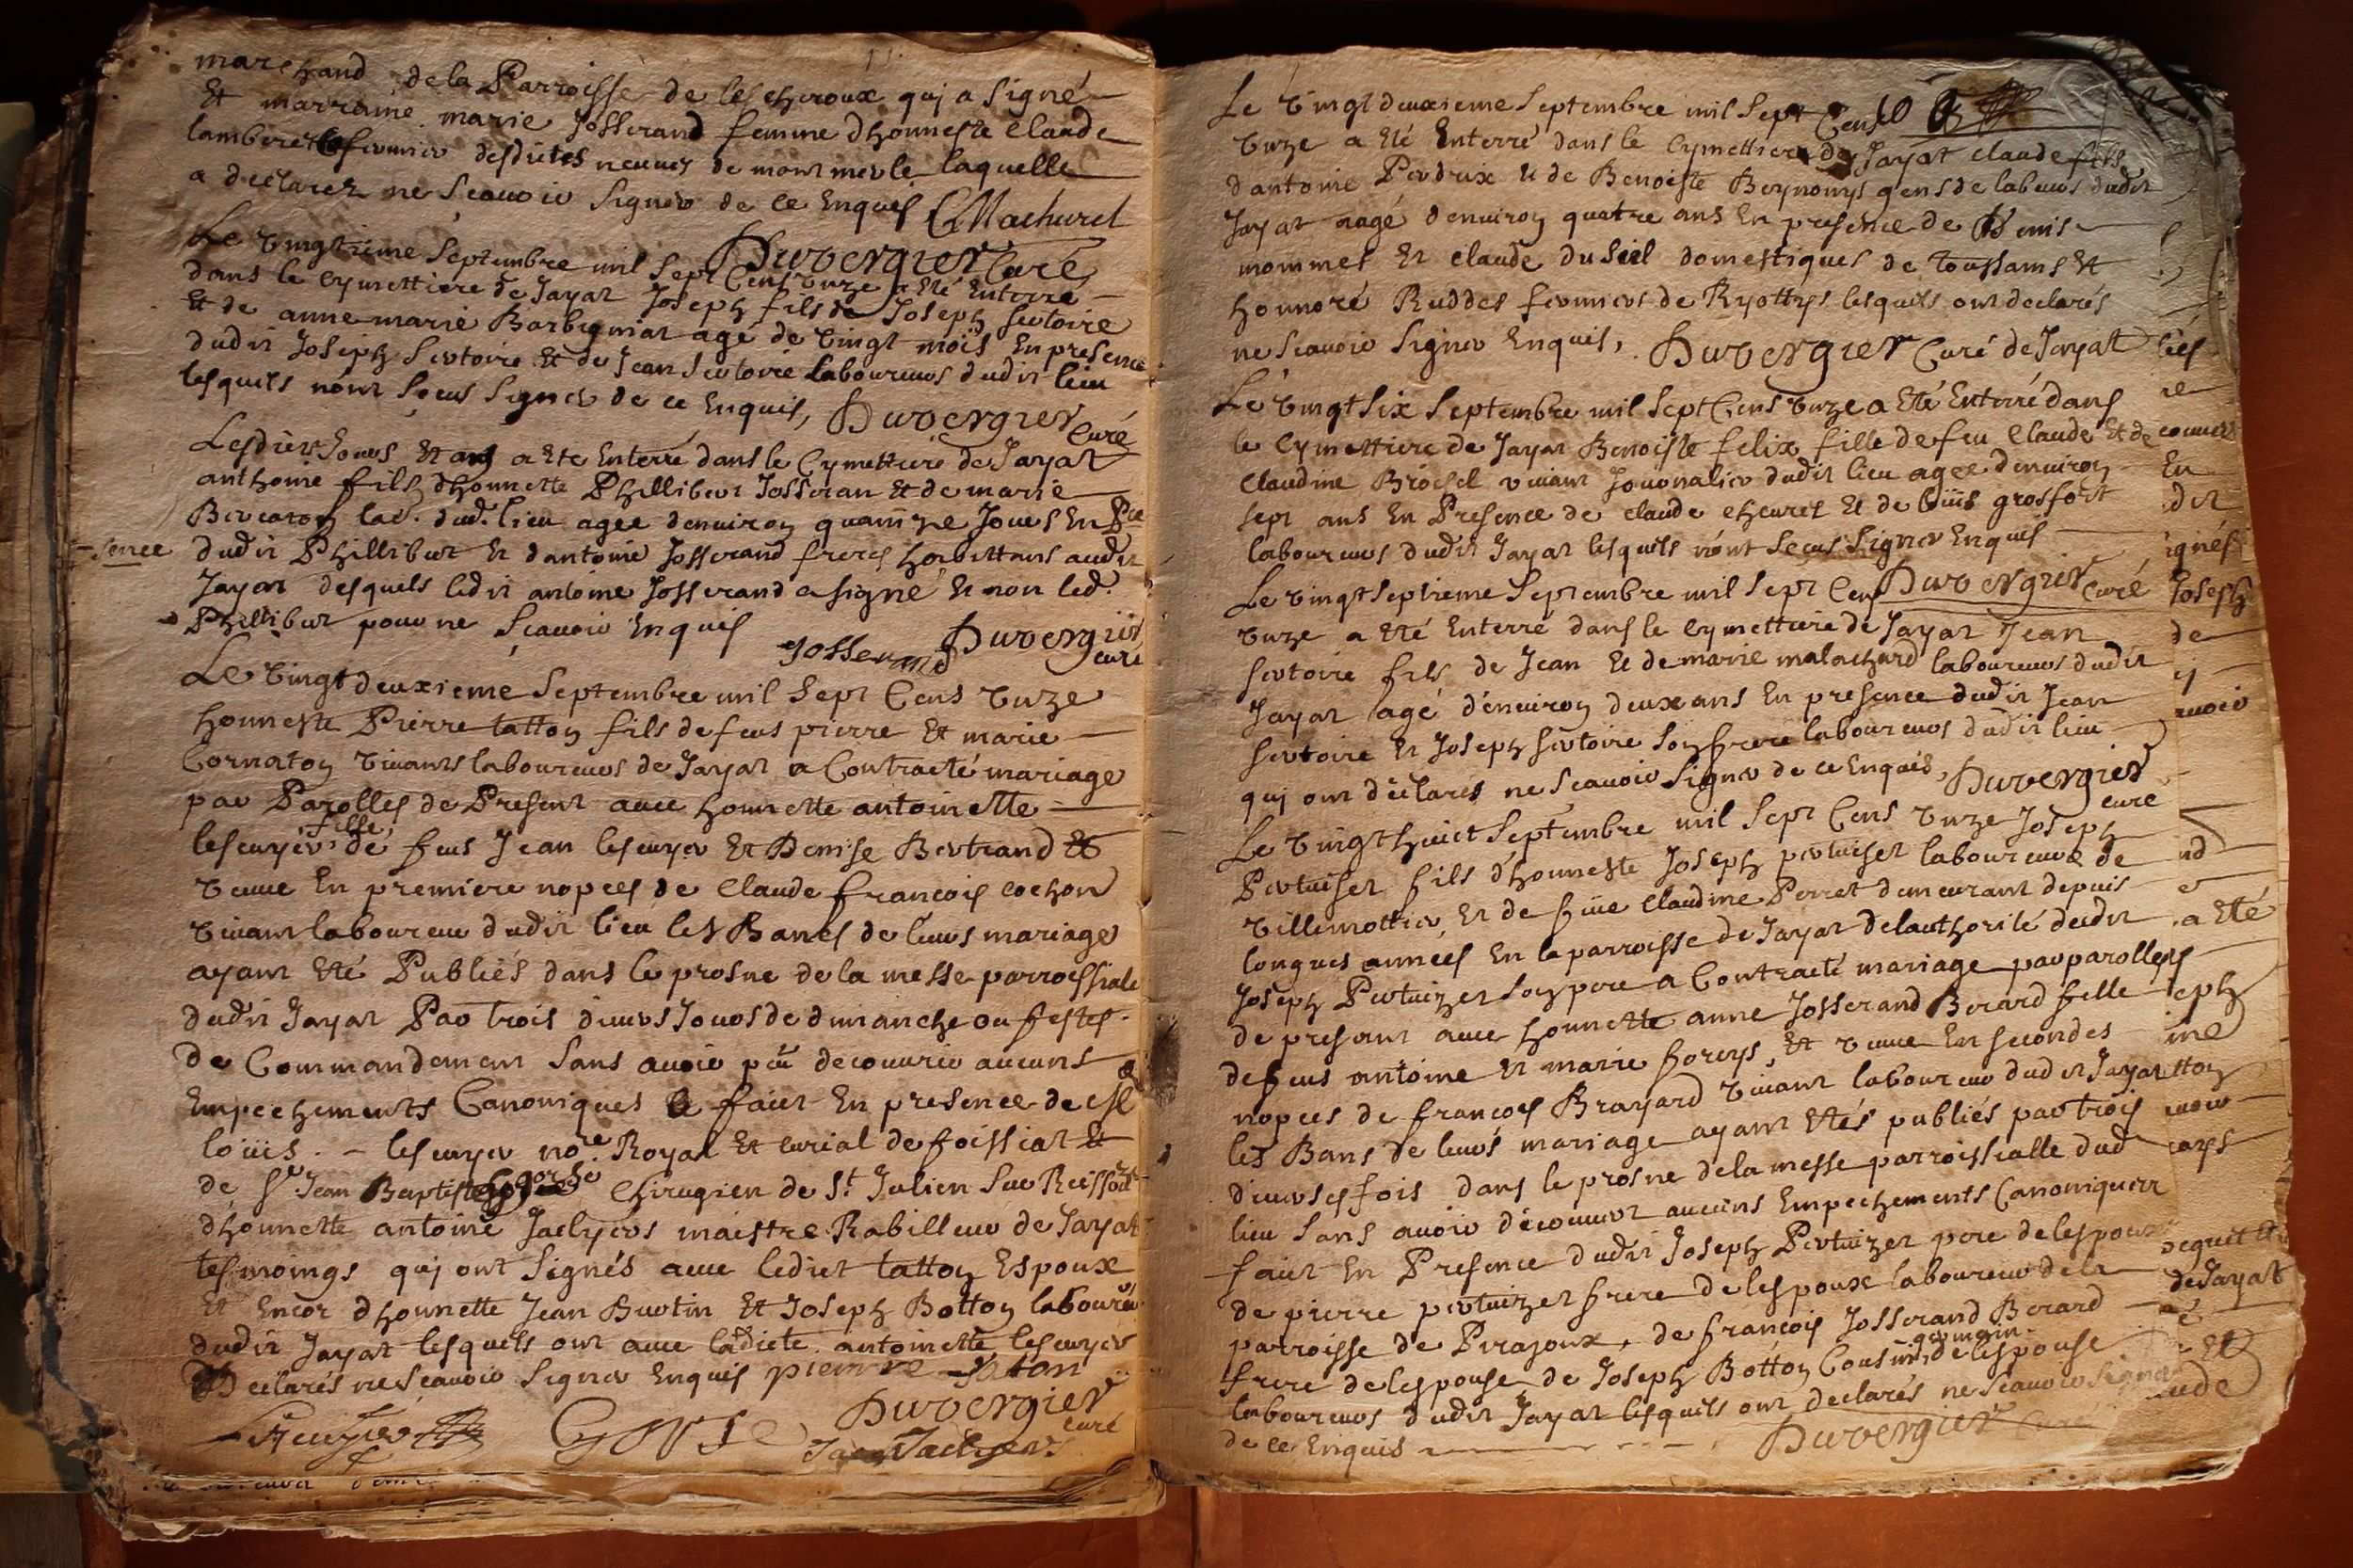 marchand de la Parroisse de lescheroux quj a signé
Et marraine marie Josserand femme dhonneste Claude
lamberet fermier desdictes neuves de montmerle laquelle
a declarez ne scauoir signer de ce Enquis CMachurel
Duvergier Curé
Le vingtieme septembre mil sept Cens vnze a Eté Enterré
dans le Cymettiere de Jayat Joseph fils de Joseph sertoire
Et de anne marie Barbigniat agé de vingt mois En presence
dudit Joseph Sertoire Et de Jean Sertoire laboureurs dudit lieu
lesquels n'ont sceus signer de ce Enquis, Duvergier Curé
Lesdits Jours Et an a Eté Enterré dans le Cymettiere de Jayat
anthoine fils dhonnette Phillibert Josseran Et de marie
lab. dud. lieu agee denuiron quainze Jours En Pre
-sence dudit Phillibert Et dantoine Josserand freres habittans audit
Jayat desquels ledit antoine Josserand a signé Et non led.
Phillibert pour ne Scauoir Enquis Josserand Duvergier curé
Le vingt deuxieme Septembre mil Sept Cens vnze
honneste Pierre tatton fils de feus pierre Et marie
Cornaton viuants laboureurs de Jayat a Contracté mariage
par Parolles de Present auec honnette antoinette
lescuyer fille de feus Jean lescuyer Et Denise Bertrand Et
veuue En premiere nopces de Claude francois cochon
viuant laboureur dudit lieu les Bancs de leurs mariage
ayant Eté Publiés dans le prosne de la messe parroissiale
dudit Jayat Par trois diuers Jours de dimanche ou festes
de Commandement sans auoir pû decouurir aucuns
Empechements Canoniques faict En presence de
loüis - lescuyer no.re Royal Et curial de foissiat Et
de Sr Jean Baptiste Gorse Chirugien de St Julien Sur Reissouze
dhonnette antoine Jaclyers maistre Rabilleur de Jayat
tesmoings quj ont signés auec ledict tatton Espoux
Et Encor dhonnette Jean Burtin Et Joseph Botton laboureurs
dudit Jayat lesquels ont auec ladicte antoinette lescuyer
Declarés ne Scauoir signer Enquis pierre taton
Duvergier curé
Lescuyer Gorse Jaclyer
Le vingt deuxieme septembre mil Sept Cens
vnze a Eté Enterré dans le Cymettiere de Jayat claude fils
dantoine Perdrix Et de Benoiste Beynomys gens de labeurs dudit
Jayat aagé denuiron quatre ans En presence de Denis
mommet Et claude du Seil domestiques de toussains Et
honnoré Ruddes fermiers de Ryottys lesquels ont declarés
ne scauoir signer Enquis, Duvergier Curé de Jayat
Le vingt six Septembre mil sept Cens vnze a Eté Enterré dans
le Cymettiere de Jayat Benoiste felix fille de feu Claude Et de
Claudine Brochet viuant Journalier dudit lieu agee denuiron
sept ans En Presence de claude cheuret Et de loüis grosfort
laboureurs dudit Jayat lesquels n'ont sceus signer Enquis
Duvergier Curé
Le vingt septieme Septembre mil sept Cens
vnze a Eté Enterré dans le cymettiere de Jayat Jean
sertoire fils de Jean Et de marie malachard laboureurs dudit
Jayat agé denuiron deux ans En presence dudit Jean
sertoire Et Joseph sertoire son frere laboureurs dudit lieu
quj ont déclarés ne Scauoir signer de ce Enquis, Duvergier curé
Le vingt huict Septembre mil sept Cens vnze Joseph
Pertuiset fils d'honneste Joseph pertuiset laboureur de
villemottier, Et de füe Claudine Perret demeurant depuis
longues années En la parroisse de Jayat de lauthorité dudit
Joseph Pertuizet son pere a Contracté mariage par parolles
de present auec honnette anne Josserand Berard fille
de feus antoine Et marie foreys, Et veuue En secondes
nopces de françois Brayard viuant laboureur dudit Jayat
les Bans de leurs mariage ayant Etés publiés par trois
diuerses fois dans le prosne de la messe parroissialle dud
lieu sans auoir découuert aucuns Empechements Canoniques
faict En Presence dudit Joseph Pertuizet pere de lespoux
de pierre pertuizet frere de lespoux laboureur de la
parroisse de Pirajoux, de françois Josserand Berard
frere de lespouse de Joseph Botton Cousin germain de lespouse
laboureurs dudit Jayat lesquels ont declarés ne scauoir signer
de ce Enquis Duvergier Curé
de Jayat